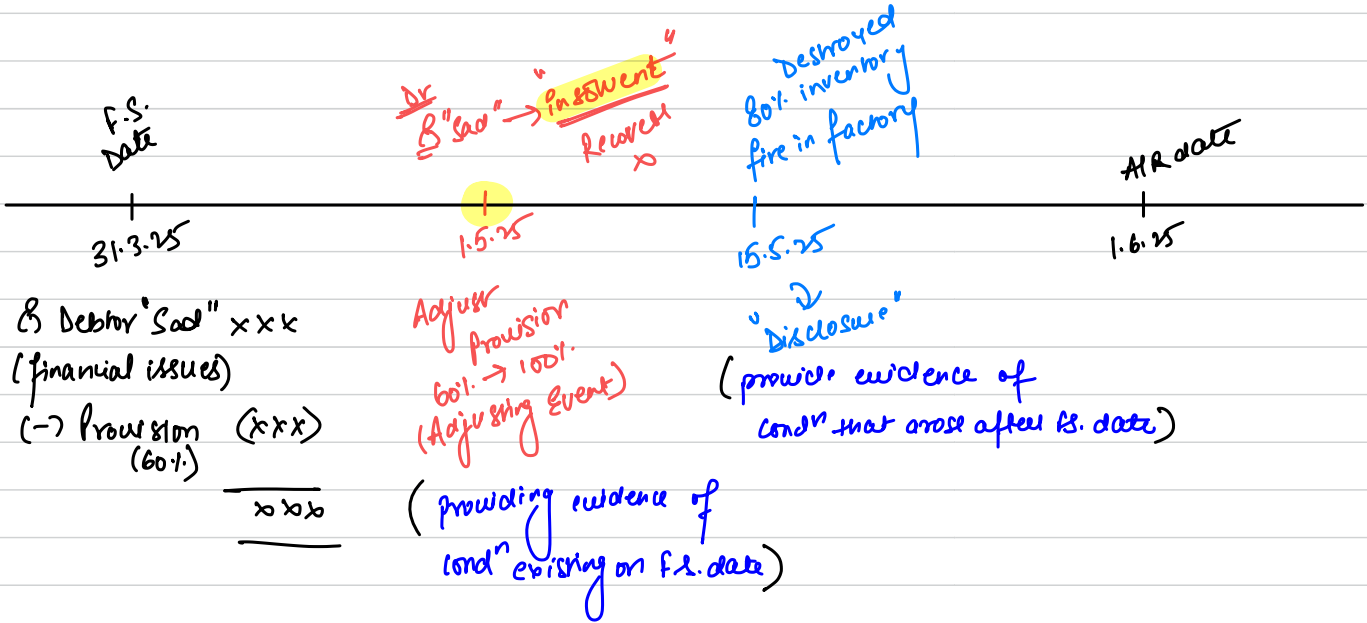 F.S.
Date
31.3.25
Debtor "Sad" xxx
(financial issues)
(-) Provision (xxx)
(60%)
xxx
Dr
"Sad" → "insolvent"
Recover
x
1.5.25
Adjust
Provision
60% → 100%
(Adjusting Event)
(providing evidence of
condⁿ existing on F.S. date)
Destroyed
80% inventory
fire in factory
15.5.25
"Disclosure"
(provide evidence of
condⁿ that arose after F.S. date)
AIR date
1.6.25